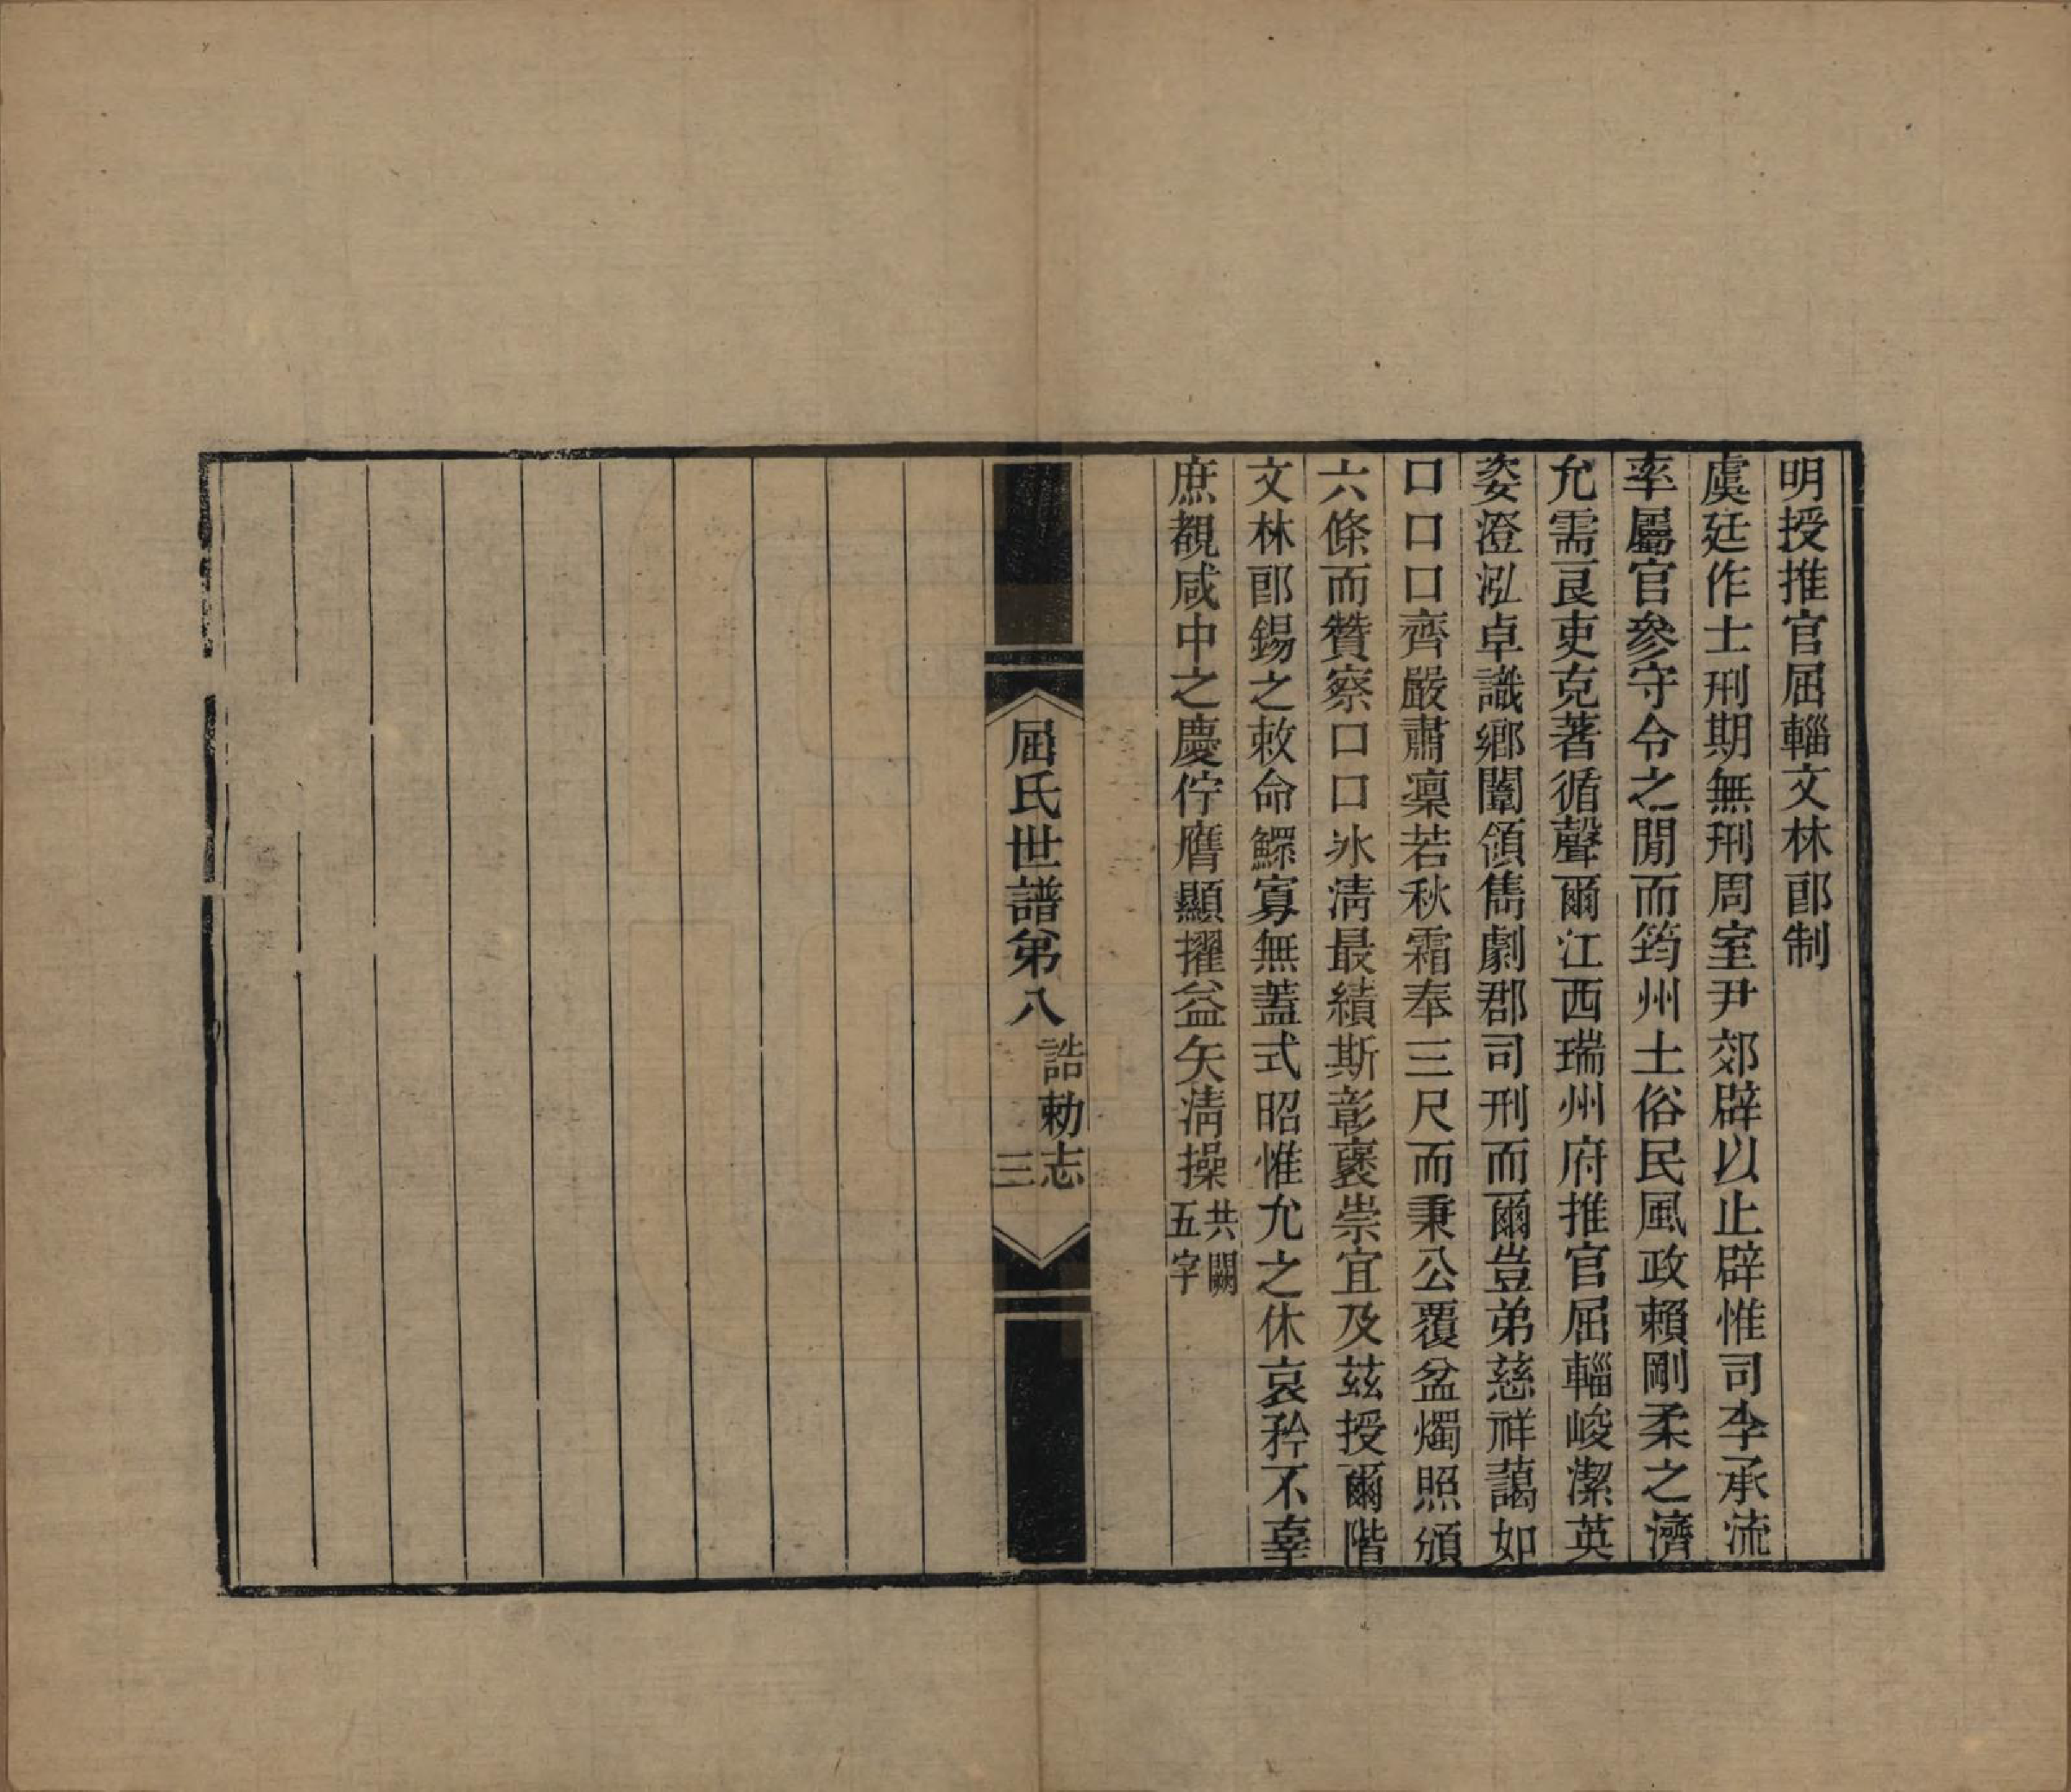 明授推官屈輜文林郎制
虞廷作士刑期無刑周室尹郊辟以止辟惟司李承流
率屬官參守令之閒而筠州土俗民風政賴剛柔之濟
允需良吏克著循聲爾江西瑞州府推官屈輜峻潔英
姿澄泓卓識鄉闈領雋劇郡司刑而爾豈弟慈祥藹如
口口口齊嚴肅凜若秋霜奉三尺而秉公覆盆燭照頒
六條而贊察口口氷淸最績斯彰褒崇宜及茲授爾階
文林郎錫之敕命鰥寡無蓋式昭惟允之休哀矜不辜
庶覩咸中之慶佇膺顯擢益矢淸操共闕五字
屈氏世譜弟八 誥勅志 三